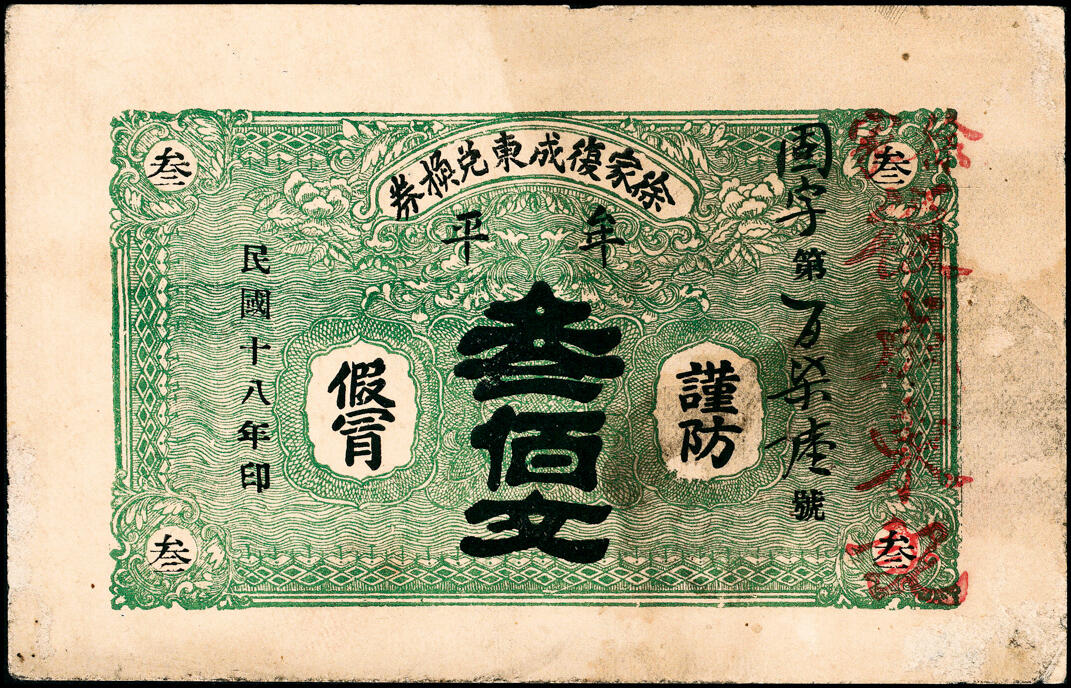 徐家復成東兌換券
牟平
固字第
號
叁佰文
謹防
假冐
民國十八年印
叁
叁
叁
叁